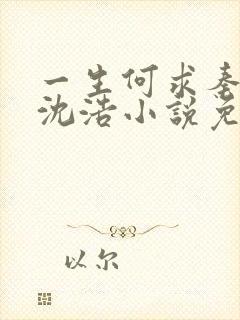 一生何求秦
沈浩小說免
以尔